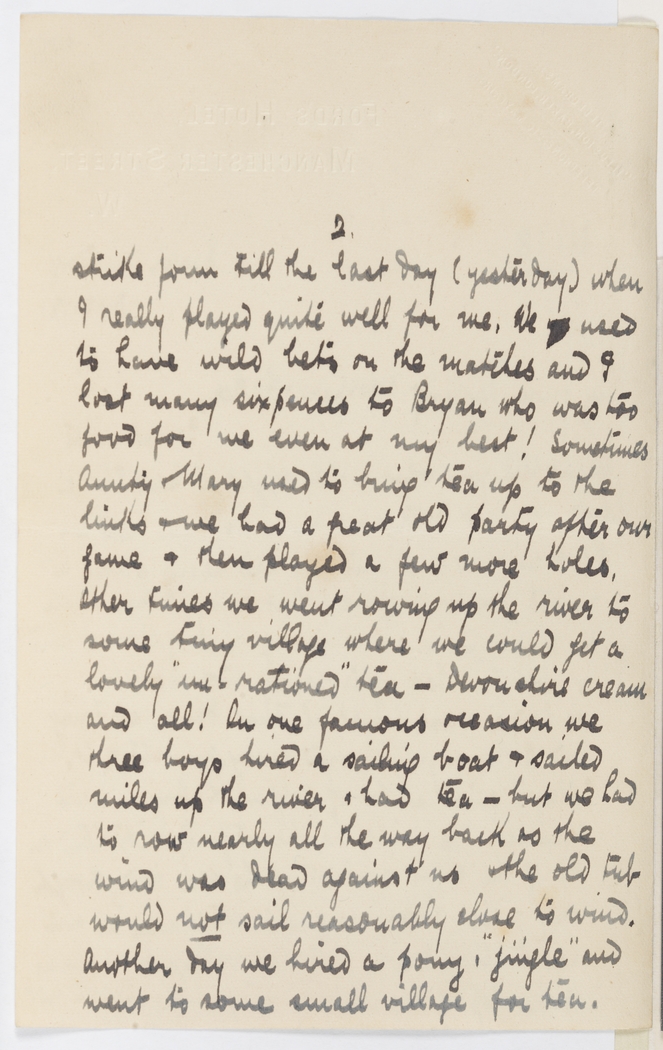 FORDS HOTEL
MANCHESTER STREET
W.
2.
strike form till the last day (yesterday) when
I really played quite well for me. We used
to have wild bets on the matches and I
lost many sixpences to Bryan who was too
good for me even at my best! Sometimes
Aunty & Mary used to bring tea up to the
links & we had a great old party after our
game & then played a few more holes.
Other times we went rowing up the river to
some tiny village where we could get a
lovely "un-rationed" tea – Devonshire cream
and all! On one famous occasion we
three boys hired a sailing boat & sailed
miles up the river & had tea – but we had
to row nearly all the way back as the
wind was dead against us & the old tub
would not sail reasonably close to wind.
Another day we hired a pony & "jingle" and
went to some small village for tea.